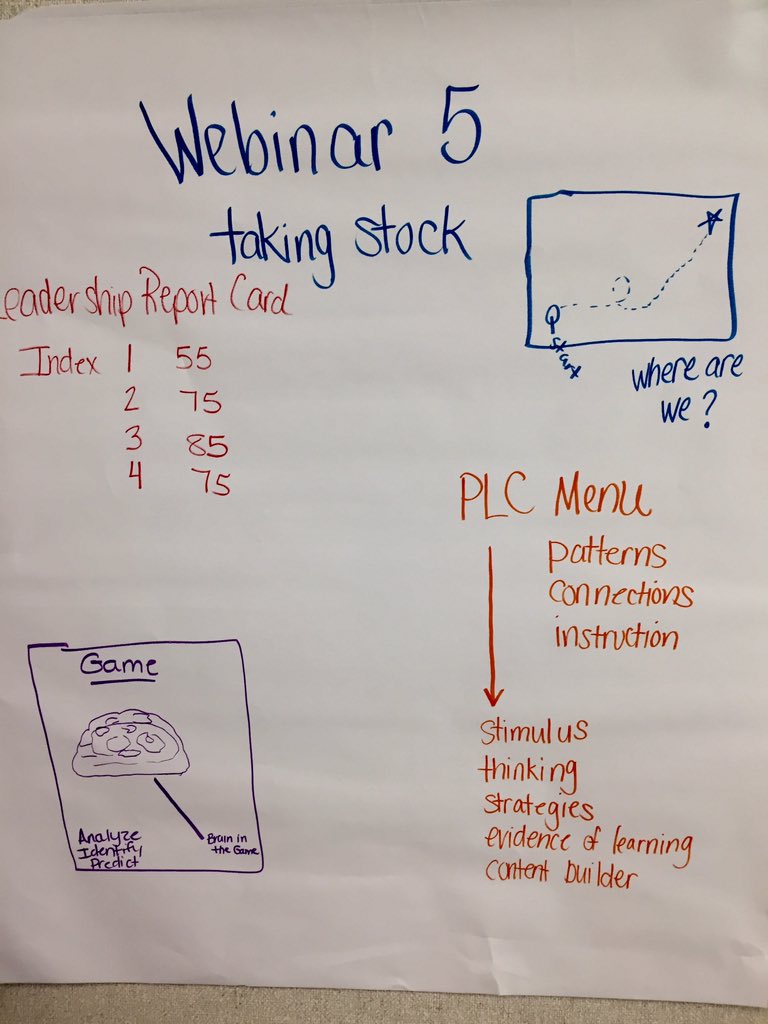 Webinar 5
taking stock
Leadership Report Card
Index 1 55
2 75
3 85
4 75
where are
we?
PLC Menu
patterns
connections
instruction
stimulus
thinking
strategies
evidence of learning
content builder
Game
Analyze
Identify
Predict
Brain in
the Game